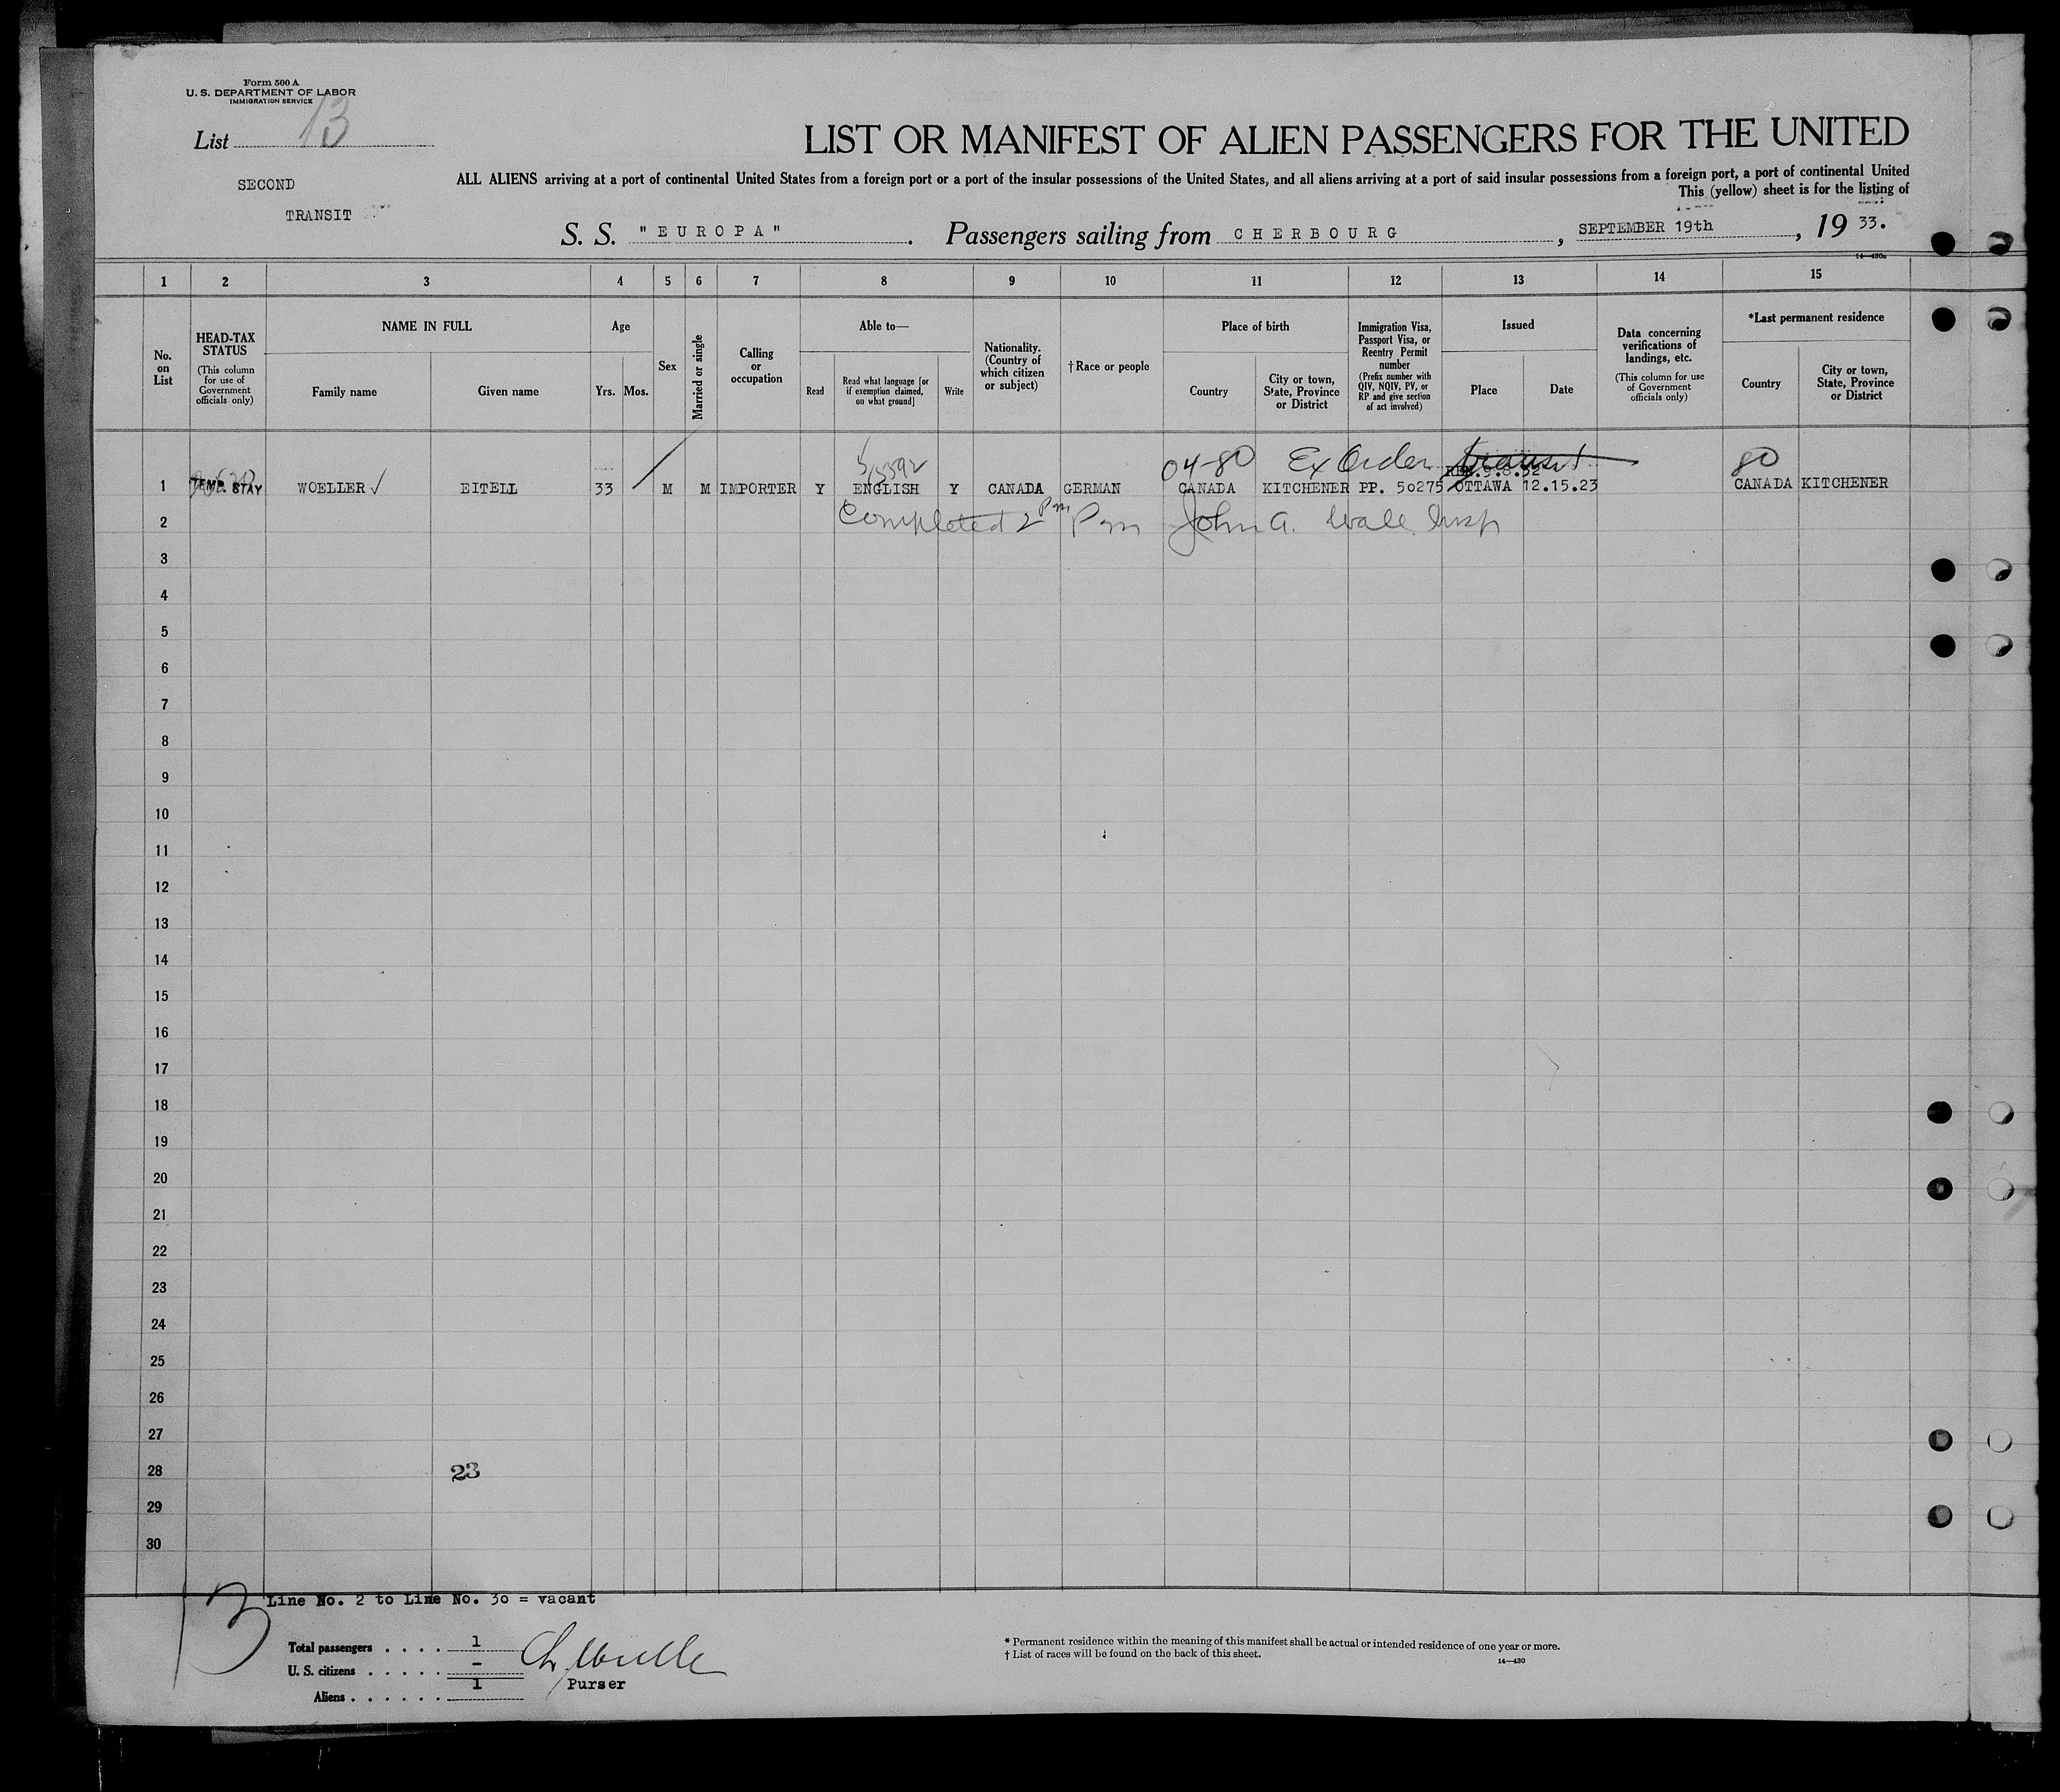 Form 500 A
U. S. DEPARTMENT OF LABOR
IMMIGRATION SERVICE
List 13
LIST OR MANIFEST OF ALIEN PASSENGERS FOR THE UNITED
SECOND
TRANSIT
ALL ALIENS arriving at a port of continental United States from a foreign port or a port of the insular possessions of the United States, and all aliens arriving at a port of said insular possessions from a foreign port, a port of continental United
This (yellow) sheet is for the listing of
S. S. "EUROPA". Passengers sailing from CHERBOURG, SEPTEMBER 19th, 19 33.
14—430a
1 2 3 4 5 6 7 8 9 10 11 12 13 14 15
No. on List
HEAD-TAX STATUS (This column for use of Government officials only)
NAME IN FULL
Family name
Given name
Age
Yrs. Mos.
Sex
Married or single
Calling or occupation
Able to—
Read
Read what language [or if exemption claimed, on what ground]
Write
Nationality. (Country of which citizen or subject)
† Race or people
Place of birth
Country
City or town, State, Province or District
Immigration Visa, Passport Visa, or Reentry Permit number (Prefix number with QIV, NQIV, PV, or RP and give section of act involved)
Issued
Place
Date
Data concerning verifications of landings, etc. (This column for use of Government officials only)
*Last permanent residence
Country
City or town, State, Province or District
04-80 Ex Order transit 80
1 TEMP. STAY WOELLER ✓ EITELL 33 M M IMPORTER Y ENGLISH Y CANADA GERMAN CANADA KITCHENER PP. 50275 OTTAWA 12.15.23 CANADA KITCHENER
2 Completed 2 Pm Pm John A. Wall Insp
3
4
5
6
7
8
9
10
11
12
13
14
15
16
17
18
19
20
21
22
23
24
25
26
27
28 23
29
30
Line No. 2 to Line No. 30 = vacant
13
Total passengers . . . . 1
U. S. citizens . . . . . –
Aliens . . . . . . 1
Purser
* Permanent residence within the meaning of this manifest shall be actual or intended residence of one year or more.
† List of races will be found on the back of this sheet.
14—430